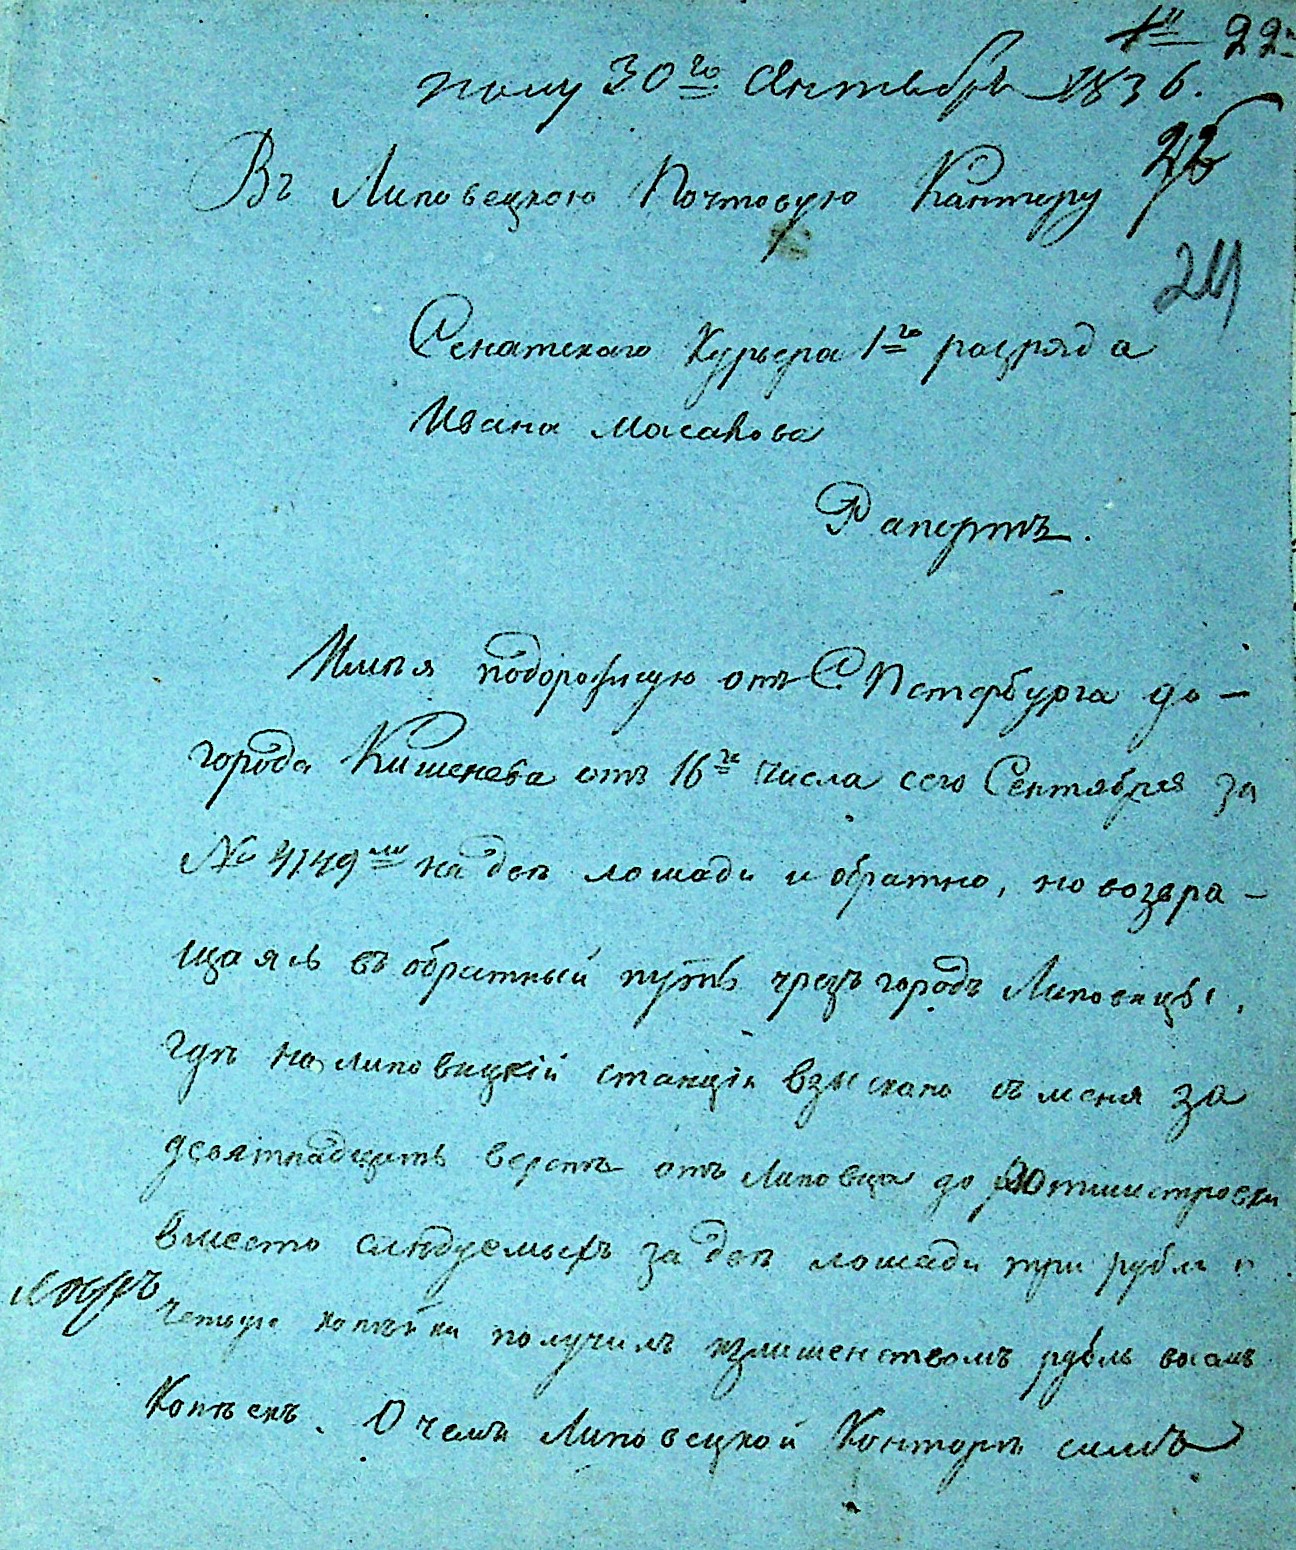 22
полу 30го Октебря 1836.
Въ Липовецкою Почтовую Кантору
24
Сенатскаго Курьера 1го разряда
Ивана Масакова
Рапортъ.
Имѣя подорожную отъ СПетербурга до-
города Кишенева отъ 16го числа сего Сентября за
№ 4149мъ на двѣ лошади и обратно, но возвра-
щаясь въ обратный путь чрезъ городъ Липовицы,
гдѣ на липовицкій станціи взыскано съ меня за
девятнадцать верстъ отъ Липовца до Ротмистровки
вместо слѣдуемыхъ за двѣ лошади три рубли и
четыре копѣйки получилъ излишенствомъ рубль восемь
Копѣекъ. О чемъ Липовецкой Конторѣ симъ